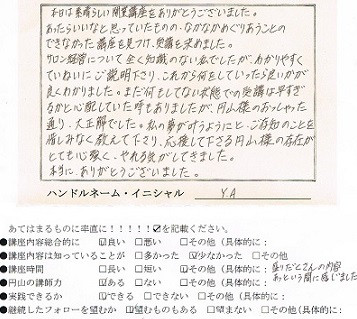 本日は素晴らしい開業講座をありがとうございました。
あったらいいなと思っていたものの、なかなかめぐりあうことの
できなかった講座を見つけ、受講を決めました。
サロン経営について全く知識のない私でしたが、わかりやすく
ていねいにご説明下さり、これから何をしていったら良いかが
良くわかりました。まだ何もしてない状態での受講は早すぎ
るかと心配していた時もありましたが、円山様のおっしゃった
通り、大正解でした。私の夢が叶うようにと、ご存知のことを
惜しみなく教えて下さり、応援して下さる円山様の存在が
とても心強く、やれる気がしてきました。
本当に、ありがとうございました。
ハンドルネーム・イニシャル Y.A
あてはまるものに率直に!!!!!☑を記載ください。
●講座内容総合的に ☑良い □悪い □その他(具体的に:
●講座内容は知っていることが □多かった ☑少なかった □その他
●講座時間 □長い □短い ☑その他(具体的に: 盛りだくさんの内容
あっという間に感じました
●円山の講師力 ☑ある □ない □その他(具体的に:
●実践できるか ☑できる □できない □その他(具体的に:
●継続したフォローを望むか ☑望むものもある □望まない □その他(具体的に: